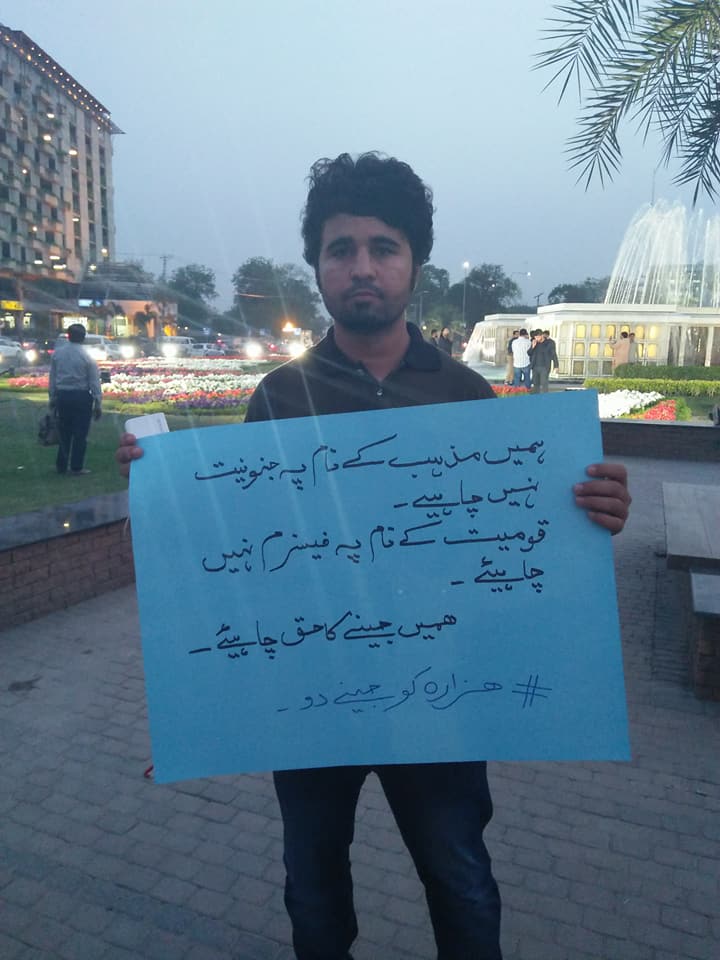 ہمیں مذہب کے نام پہ جنونیت
نہیں چاہیے۔
قومیت کے نام پہ فیسزم نہیں
چاہیئے۔
ھمیں جینے کا حق چاہیئے۔
# ھزارہ کو جینے دو۔